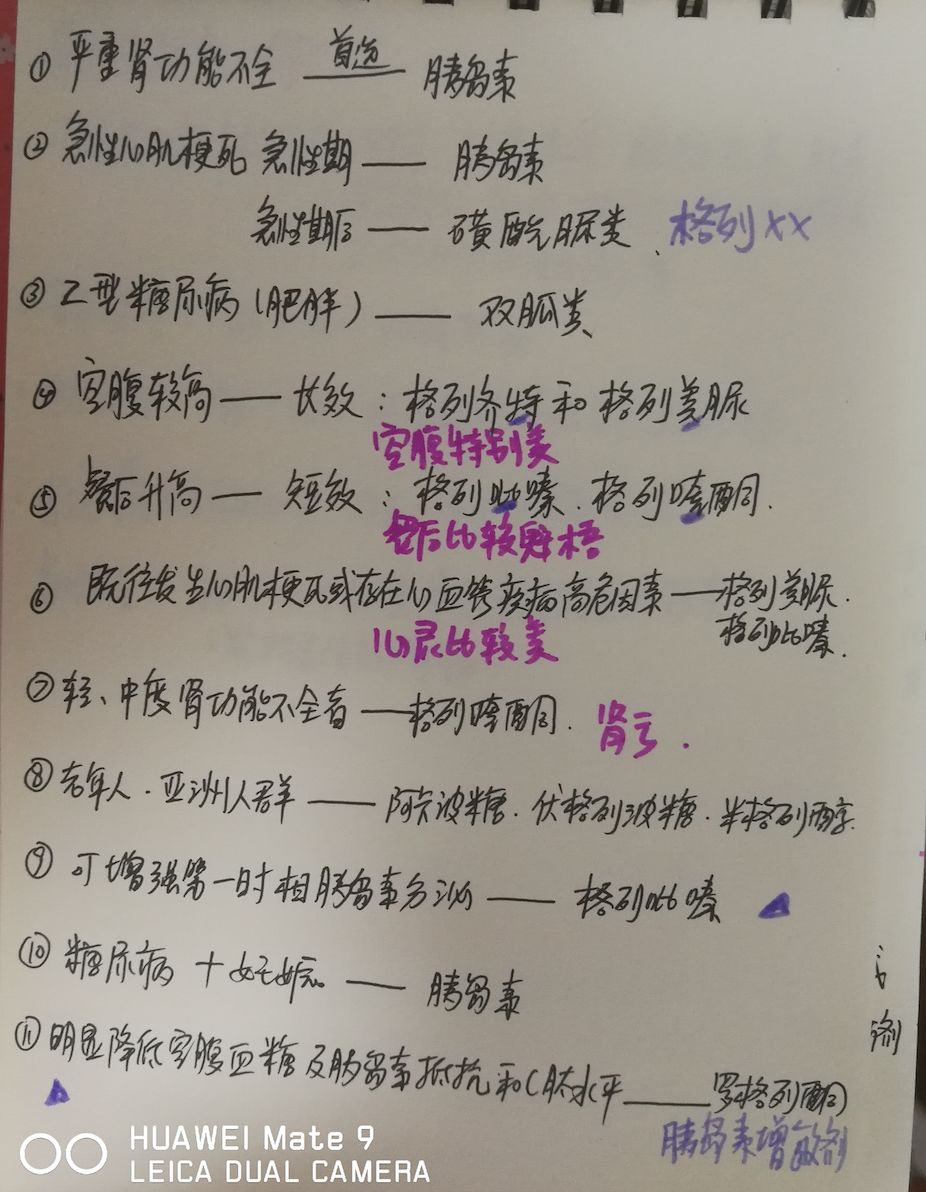 ① 严重肾功能不全 首选 胰岛素
② 急性心肌梗死 急性期 —— 胰岛素
急性期后 —— 磺酰脲类、格列××
③ 2型糖尿病(肥胖) —— 双胍类、
④ 空腹较高 —— 长效:格列齐特和格列美脲
空腹特别美
⑤ 餐后升高 — 短效:格列吡嗪.格列喹酮.
餐后比较
⑥ 既往发生心肌梗死或存在心血管疾病高危因素 —— 格列美脲.
格列吡嗪.
心尿比较美
⑦ 轻、中度肾功能不全者 —— 格列喹酮.
肾亏.
⑧ 老年人.亚洲人群 —— 阿卡波糖.伏格列波糖.米格列醇.
⑨ 可增强第一时相胰岛素分泌 —— 格列吡嗪
⑩ 糖尿病 + 妊娠。—— 胰岛素
⑪ 明显降低空腹血糖及胰岛素抵抗和C肽水平 —— 罗格列酮)
胰岛素增敏剂
剂
HUAWEI Mate 9
LEICA DUAL CAMERA